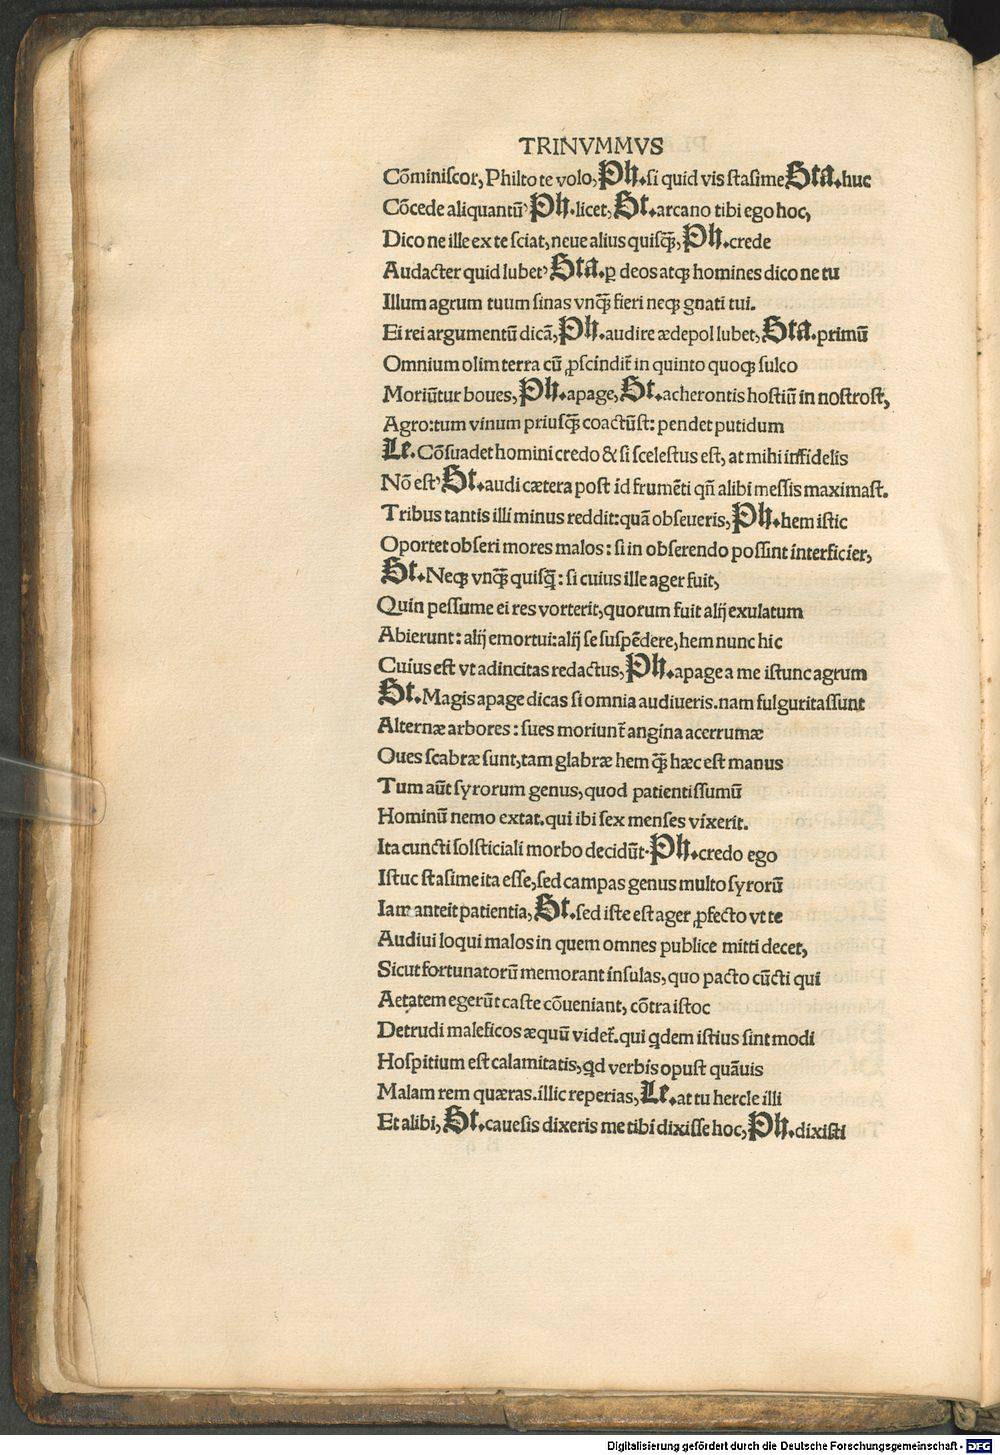 TRINVMMVS
Cōminiscor, Philto te volo, Ph. si quid vis stasime Sta. huc
Cōcede aliquantū, Ph. licet, St. arcano tibi ego hoc,
Dico ne ille ex te sciat, neue alius quisq̄, Ph. crede
Audacter quid lubet, Sta. ꝑ deos atqꝫ homines dico ne tu
Illum agrum tuum sinas vnq̄ fieri neqꝫ gnati tui.
Ei rei argumentū dicā, Ph. audire ædepol lubet, Sta. primū
Omnium olim terra cū ꝓscindit̄ in quinto quoqꝫ sulco
Moriūtur boues, Ph. apage, St. acherontis hostiū in nostrost,
Agro: tum vinum priusq̄ coactūst: pendet putidum
Le. Cōsuadet homini credo & si scelestus est, at mihi infidelis
Nō est, St. audi cætera post id frumēti qn̄ alibi messis maximast.
Tribus tantis illi minus reddit: quā obseueris, Ph. hem istic
Oportet obseri mores malos: si in obserendo possint interficier,
St. Neqꝫ vnq̄ quisq̄: si cuius ille ager fuit,
Quin pessume ei res vorterit, quorum fuit alij exulatum
Abierunt: alij emortui: alij se suspēdere, hem nunc hic
Cuius est vt adincitas redactus, Ph. apage a me istunc agrum
St. Magis apage dicas si omnia audiueris. nam fulguritassunt
Alternæ arbores: sues moriunt̄ angina acerrumæ
Oues scabræ sunt, tam glabræ hem q̄ hæc est manus
Tum aūt syrorum genus, quod patientissumū
Hominū nemo extat. qui ibi sex menses vixerit.
Ita cuncti solsticiali morbo decidūt. Ph. credo ego
Istuc stasime ita esse, sed campas genus multo syrorū
Iam anteit patientia, St. sed iste est ager ꝓfecto vt te
Audiui loqui malos in quem omnes publice mitti decet,
Sicut fortunatorū memorant insulas, quo pacto cūcti qui
Aetatem egerūt caste cōueniant, cōtra istoc
Detrudi maleficos æquū videt̄. qui qdem istius sint modi
Hospitium est calamitatis, qd verbis opust quāuis
Malam rem quæras. illic reperias, Le. at tu hercle illi
Et alibi, St. cauesis dixeris me tibi dixisse hoc, Ph. dixisti
Digitalisierung gefördert durch die Deutsche Forschungsgemeinschaft - DFG